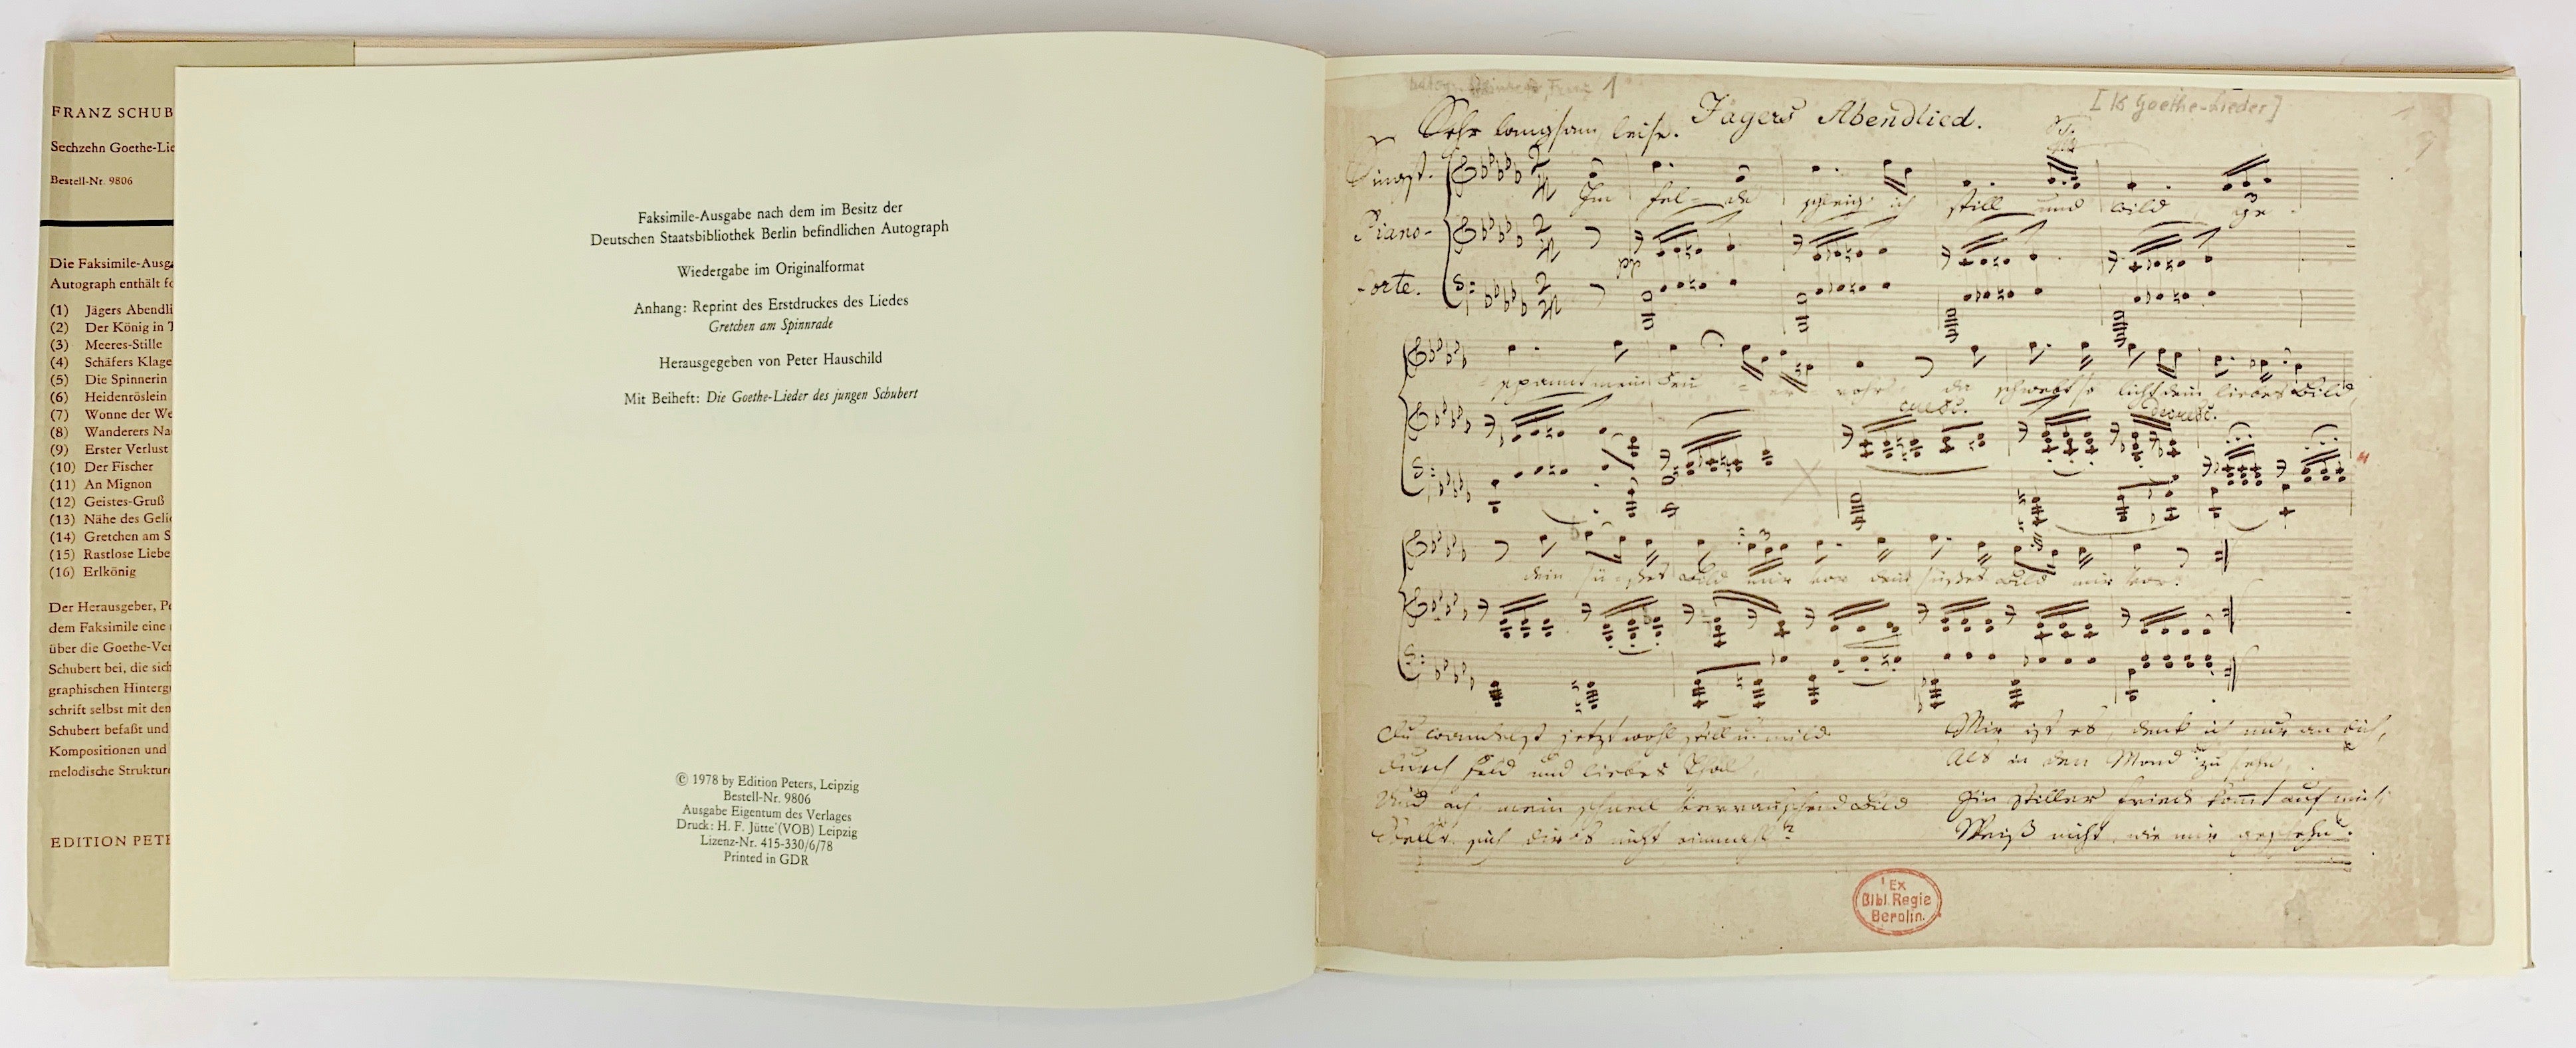 FRANZ SCHUB
Sechzehn Goethe-Lie
Bestell-Nr. 9806
Die Faksimile-Ausg
Autograph enthält fo
(1) Jägers Abendli
(2) Der König in T
(3) Meeres-Stille
(4) Schäfers Klage
(5) Die Spinnerin
(6) Heidenröslein
(7) Wonne der We
(8) Wanderers Na
(9) Erster Verlust
(10) Der Fischer
(11) An Mignon
(12) Geistes-Gruß
(13) Nähe des Geli
(14) Gretchen am S
(15) Rastlose Liebe
(16) Erlkönig
Der Herausgeber, Pe
dem Faksimile eine
über die Goethe-Ver
Schubert bei, die sich
graphischen Hinterg
schrift selbst mit den
Schubert befaßt und
Kompositionen und
melodische Struktur
EDITION PETE
Faksimile-Ausgabe nach dem im Besitz der
Deutschen Staatsbibliothek Berlin befindlichen Autograph
Wiedergabe im Originalformat
Anhang: Reprint des Erstdruckes des Liedes
Gretchen am Spinnrade
Herausgegeben von Peter Hauschild
Mit Beiheft: Die Goethe-Lieder des jungen Schubert
© 1978 by Edition Peters, Leipzig
Bestell-Nr. 9806
Ausgabe Eigentum des Verlages
Druck: H. F. Jütte (VOB) Leipzig
Lizenz-Nr. 415-330/6/78
Printed in GDR
1
[16 Goethe-Lieder]
Sehr langsam, leise. Jägers Abendlied.
Singst.
Im Fel - de schleich ich still und wild ge -
Piano-
pp
forte.
spannt mein Feu - er - rohr da schwebt so licht dein liebes Bild,
cresc. decresc.
dein süßes Bild mir vor dein süßes Bild mir vor.
Du wandelst jetzt wohl still u. mild
Durch Feld und liebes Thal,
Und ach mein schnell verrauschend Bild
Stellt sich dirs nicht einmahl?
Mir ist es, denk ich nur an dich,
Als in den Mond zu sehn,
Ein stiller Friede kommt auf mich
Weiß nicht, wie mir geschehn.
Ex
Bibl. Regia
Berolin.